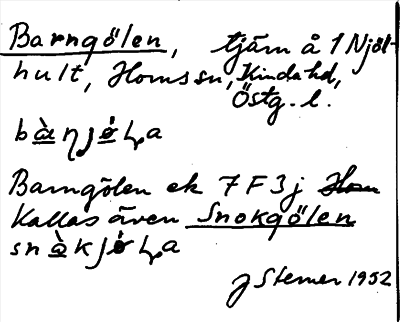 Barngölen, tjärn å 1 Njäl-
hult, Hornssn, Kinda hd,
Östg. l.
bàŋjö́Ꞔa
Barngölen ek 7F3j
Kallas även Snokgölen
snàkjö́Ꞔa
J Stemer 1952